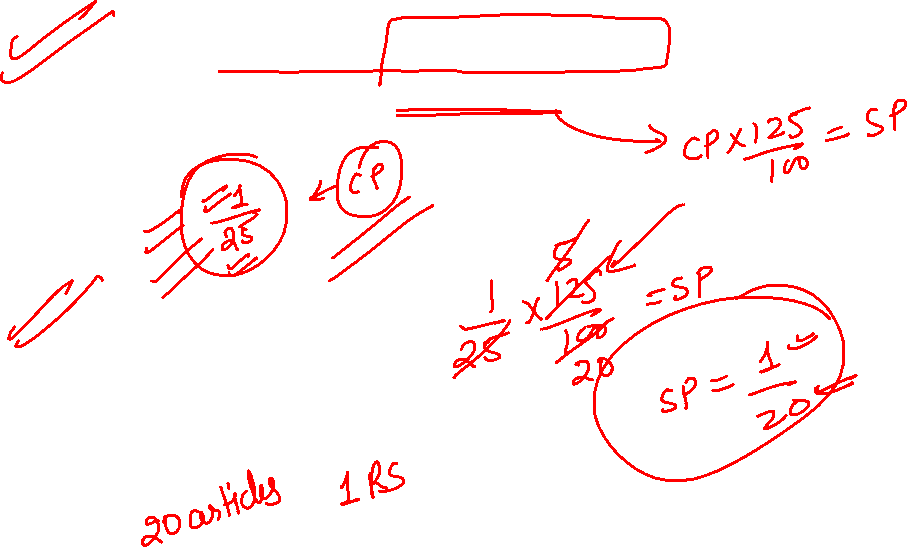 CP × 125/100 = SP
1/25 ← CP
1/25 × 125/100 = SP
5
20
SP = 1/20
20 articles 1 RS